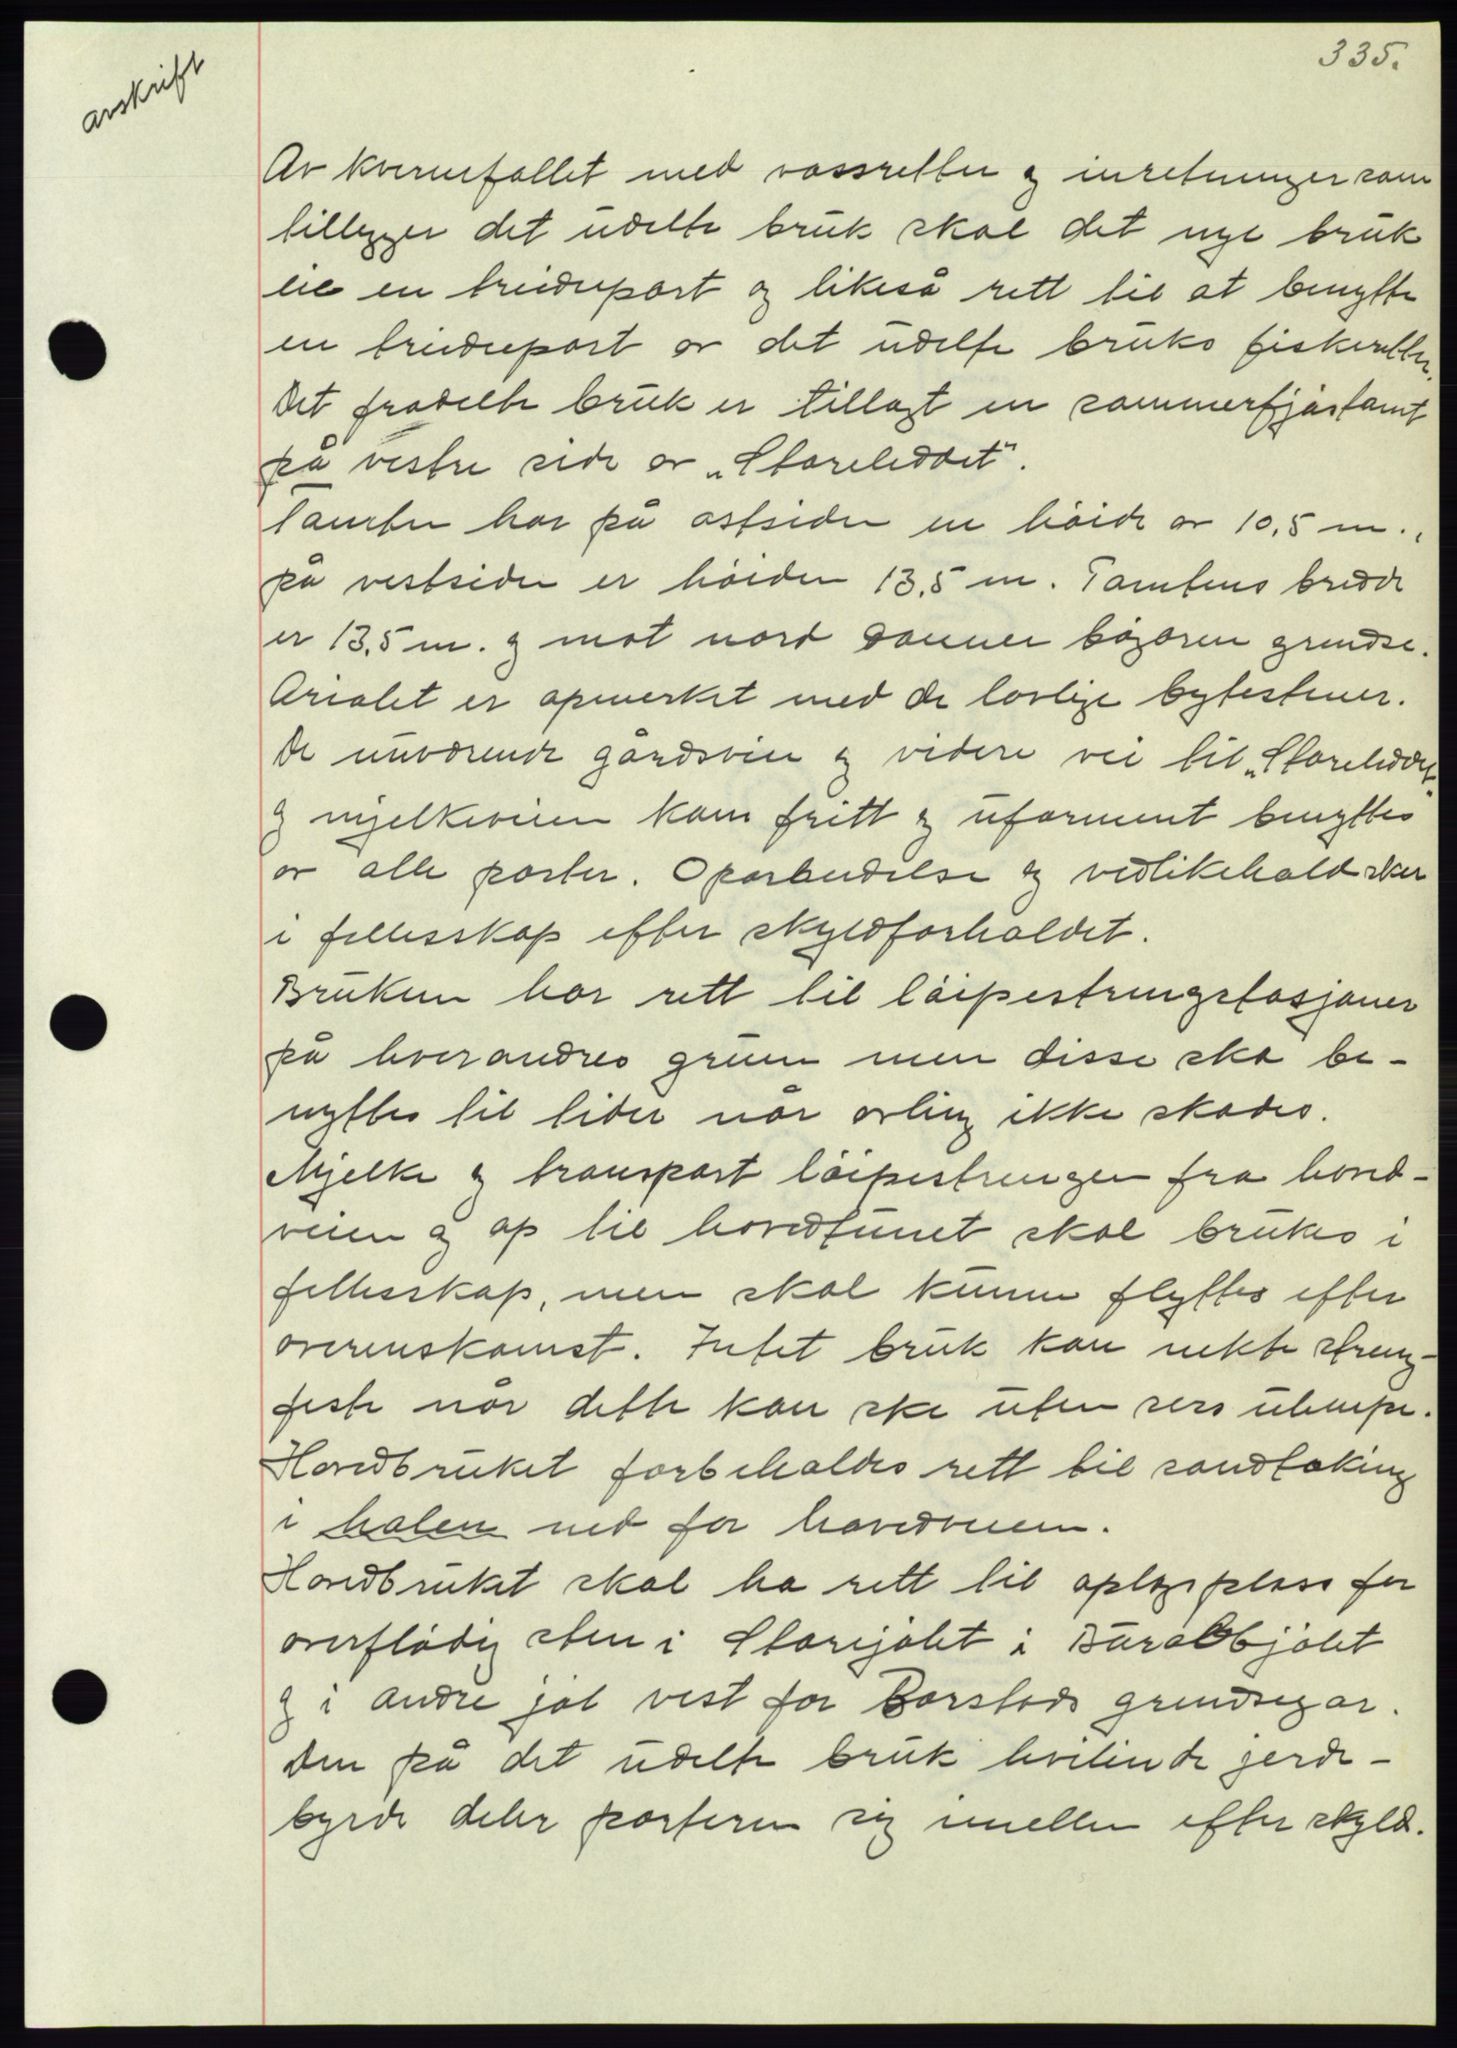 335.
avskrift
Av kvernefallet med vassretter og inretninger som
tillegger det udelte bruk skal det nye bruk
eie en trediepart og likeså rett til at benytte
en trediepart av det udelte bruks fiskeretter.
Det fradelte bruk er tillagt en sommerfjøstomt
på vestre side av „Storeleddet".
Tomten har på østsiden en höide av 10,5 m.,
på vestsiden er höiden 13,5 m. Tomtens bredde
er 13,5 m. og mot nord danner bögaren grendse.
Arialet er opmerket med de lovlige bytestener.
De nuværende gårdsveie og videre vei til „Storeleddet"
og mjelkeveien kan fritt og uforment benyttes
av alle parter. Oparbeidelse og vedlikehold sker
i fellesskap efter skyldforholdet.
Bruken har rett til löipestrengstasjoner
på hverandres grunn men disse ska be-
nyttes til tider når avling ikke skades.
Mjelke og transport löipestrengen fra hoved-
veien og op til hovedtunet skal brukes i
fellesskap, men skal kunne flyttes efter
overenskomst. Intet bruk kan nekte streng-
feste når dette kan ske uten sers ulempe.
Hovedbruket forbeholdes rett til sandtaking
i halen ned for hovedveien.
Hovedbruket skal ha rett til oplagsplass for
overflödig sten i Storejølet i Burabbjølet
og i andre jøl vest for Borstads grendsegar.
Den på det udelte bruk hvilende jerde-
byrde deler parteren sig imellen efter skyld.